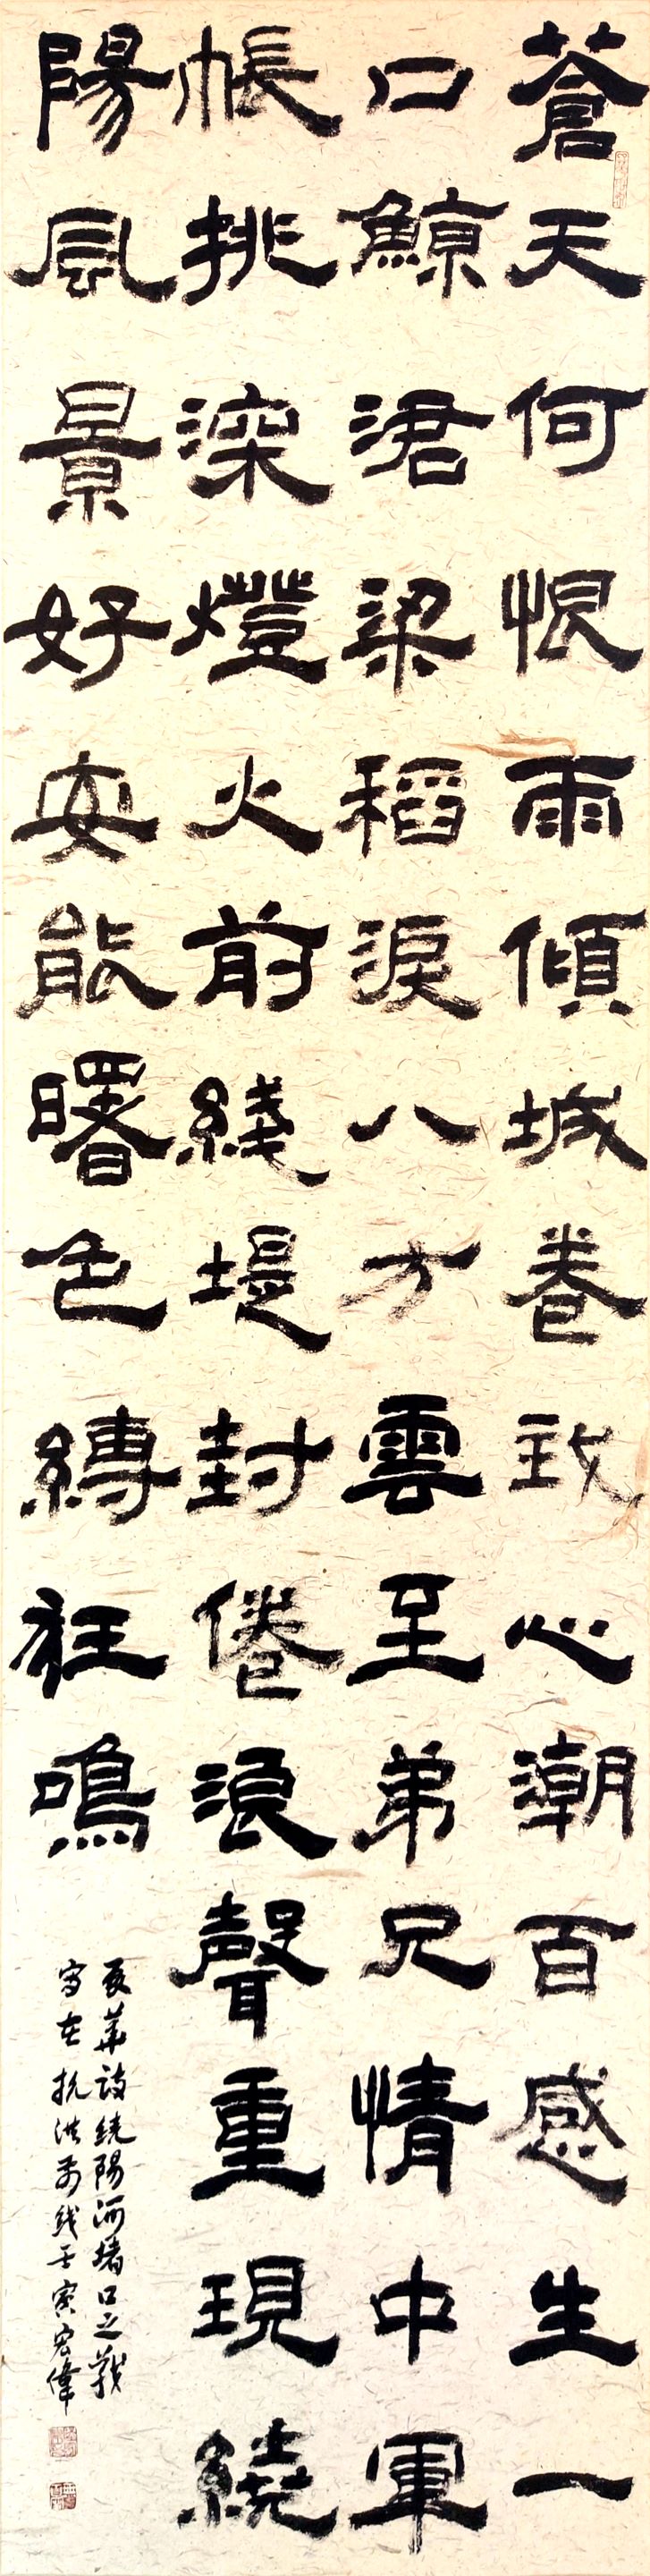 蒼天何恨雨傾城卷致心潮百感生一
口鯨涒梁稻淚八方雲至弟兄情中軍
帳挑深燈火前綫堤封倦浪聲重現繞
陽風景好安能曙色縛狂鳴
華詩繞陽河堵口之戰
寫在抗洪前线壬寅宏偉